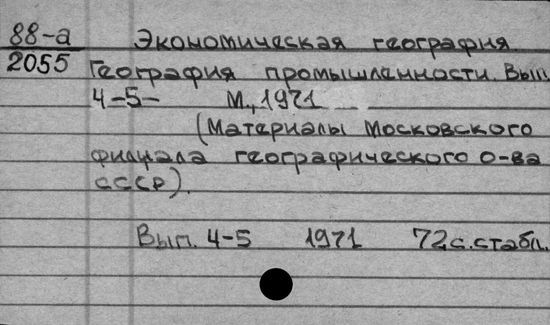 88-а Экономическая география
2055 География промышленности. Вып.
4-5- М., 1971
(Материалы Московского
филиала географического о-ва
СССР).
Вып. 4-5 1971 72 с. с табл.